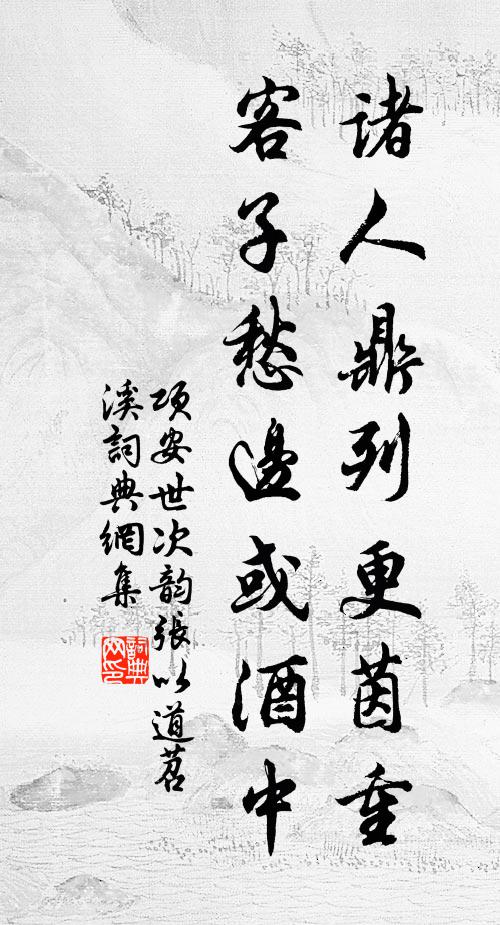 诸人鼎列更茵重
客子愁邊或酒中
项安世次韵張以道苕
溪詞典網集
詞典网印